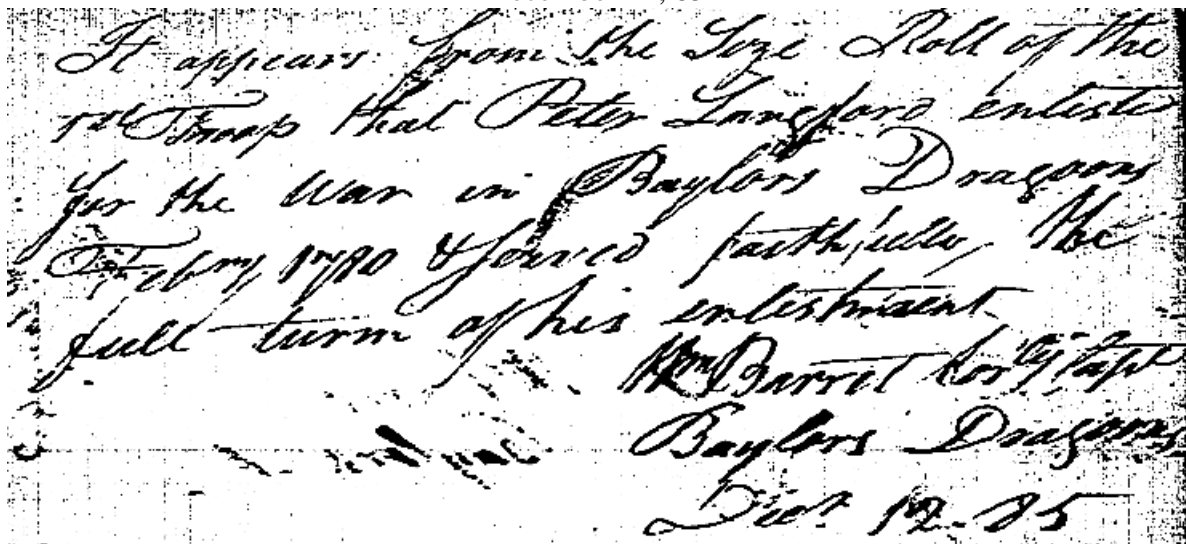 It appears from the Size Roll of the
1st Troop that Peter Langford enliste
for the War in Baylors Dragoons
Febry 1780 & served faithfully the
full turm of his enlistment
Wm Barret Capt
Baylors Dragoons
12. 85